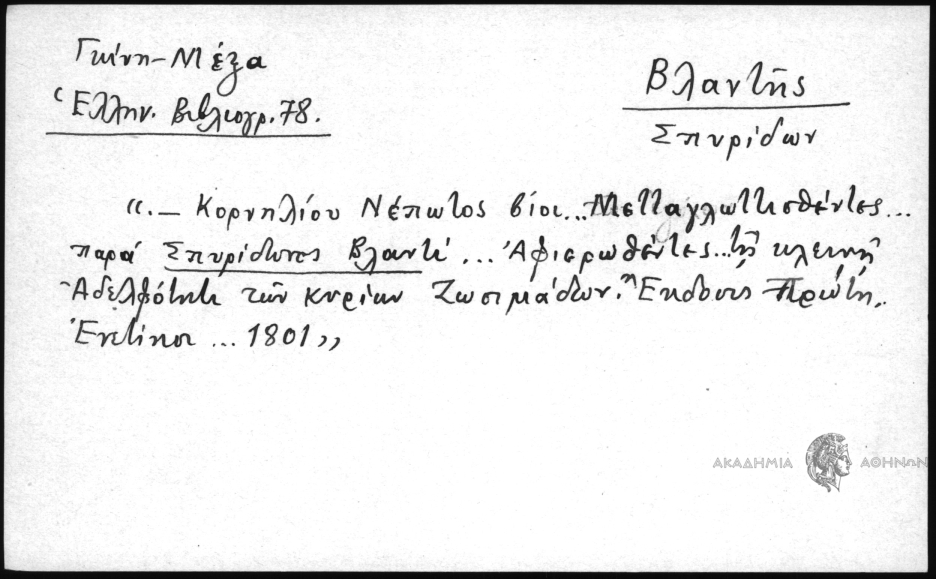 Γκίνη-Μέξα
Ἑλλην. Βιβλιογρ. 78.
Βλαντῆς
Σπυρίδων
«.— Κορνηλίου Νέπωτος βίοι... Μεταγλωττισθέντες...
παρά Σπυρίδωνος Βλαντῆ ... Ἀφιερωθέντες... τῇ κλεινῇ
Ἀδελφότητι τῶν κυρίων Ζωσιμάδων. Ἔκδοσις Πρώτη.
Ἐνετίησι ... 1801»
ΑΚΑΔΗΜΙΑ ΑΘΗΝΩΝ